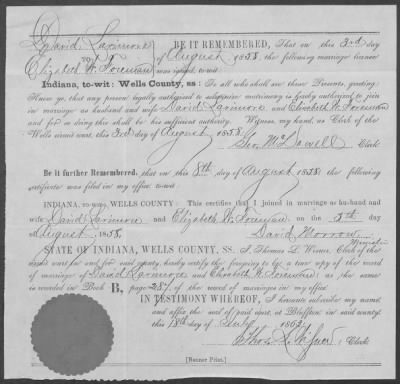 David Larimore BE IT REMEMBERED, That on this 3rd day
TO of August 1858, the following marriage license
Elizabeth W. Foreman was issued, to-wit:
Indiana, to-wit: Wells County, ss: To all who shall see these Presents, greeting
Know ye, that any person legally authorized to solemnize matrimony is hereby authorized to join
in marriage as husband and wife David Larimore and Elizabeth W. Foreman
and for so doing this shall be his sufficient authority. Witness, my hand, as Clerk of the
Wells circuit court, this 3rd day of August 1858.
Geo. McDowell Clerk
Be it further Remembered, that on this 8th day of August 1858, the following
certificate was filed in my office to-wit:
INDIANA, to-wit, WELLS COUNTY: This certifies that I joined in marriage as husband and
wife David Larimore and Elizabeth W. Foreman on the 5th day
of August 1858. David Morrow
Minister
STATE OF INDIANA, WELLS COUNTY, SS. I Thomas L. Wisner Clerk of the
circuit court in and for said county, hereby certify the foregoing to be a true copy of the record
of marriage of David Larimore and Elizabeth W. Foreman as the same
is recorded in Book B, page 287 of the record of marriages in my office.
IN TESTIMONY WHEREOF, I hereunto subscribe my name,
and affix the seal of said court, at Bluffton in said county,
this 18th day of July 186
Thos. L. Wisner Clerk
[Banner Print.]